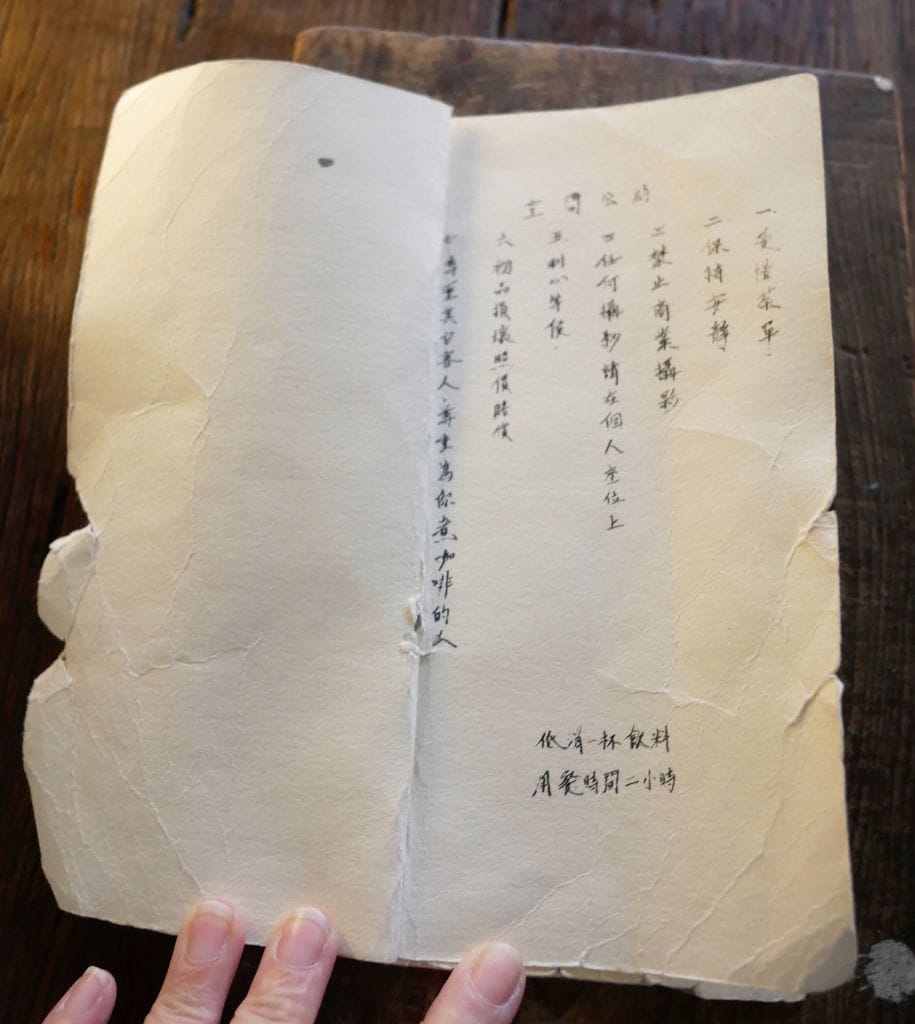 空間公約
一.愛惜菜單.
二.保持安靜.
三.禁止商業攝影
四.任何攝影請在個人座位上
五.耐心等候.
六.物品損壞照價賠償
七.尊重其它客人.尊重為你煮咖啡的人
低消一杯飲料
用餐時間二小時